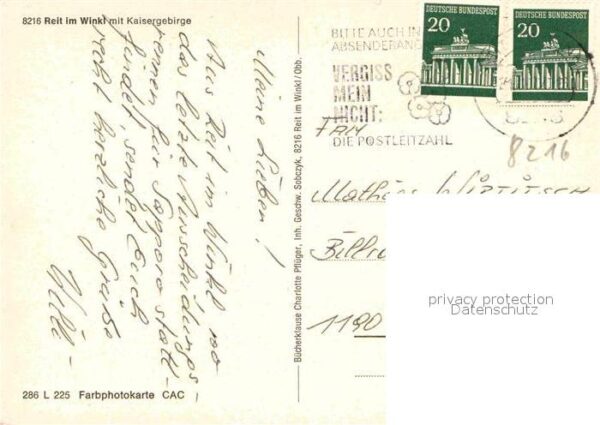 8216 Reit im Winkl mit Kaisergebirge
Meine Lieben!
Aus Reit im Winkl wo
das letzte Ausscheidungs-
rennen für Sapporo statt-
findet, sendet Euch
recht herzliche Grüße
Willi -
286 L 225 Farbphotokarte CAC
Bücherklause Charlotte Pflüger, Inh. Geschw. Sobczyk, 8216 Reit im Winkl/Obb.
BITTE AUCH IN
ABSENDERANG
VERGISS
MEIN
NICHT:
DIE POSTLEITZAHL
DEUTSCHE BUNDESPOST
20
DEUTSCHE BUNDESPOST
20
8216
FAM
Mathias
1190
privacy protection
Datenschutz